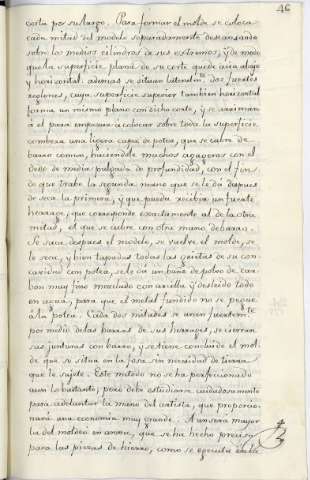 46
corta por su largo. Para formar el molde se coloca
cada mitad del modelo separadamente descansando
sobre los medios cilindros de sus extremos, y de modo
que la superficie plana de su corte quede acia abajo
y horizontal. ademas se situan lateralm.te dos fuertes
reglones, cuya superficie superior tambien horizontal
forma un mismo plano con dicho corte, y se
á el para empezar á colocar sobre toda la superficie
combexa una ligera capa de potea, que se cubre de
barro comun, haciendole muchos agugeros con el
dedo de media pulgada de profundidad, con el fin
de que trabe la segunda mano que se le dá despues
de seca la primera, y que pueda recibir un fuerte
herrage, que corresponde exactamente al de la otra
mitad, el que se cubre con otra mano de barro.
Se saca despues el modelo, se vuelve el molde, se
le seca, y bien tapadas todas las grietas de su con-
cavidad con potea, se le dá un baño de polvo de car-
bon muy fino mezclado con arcilla y desleido todo
en agua, para que el metal fundido no se pegue
á la potea. Cada dos mitades se unen fuertem.te
por medio de las barras de sus herrages, se cierran
sus junturas con barro, y se tiene concluido el mol-
de que se situa en la fosa sin necesidad de tierra
que le sujete. Este metodo no se ha perfeccionado
aun lo bastante, pero debe estudiarse cuidadosamente
para adelantar la mano del artista, que proporcio-
nará una economia muy grande. A unsera mayor
la del moldeo en arena, que se ha hecho preciso
para las piezas de hierro, como se egecuta en la